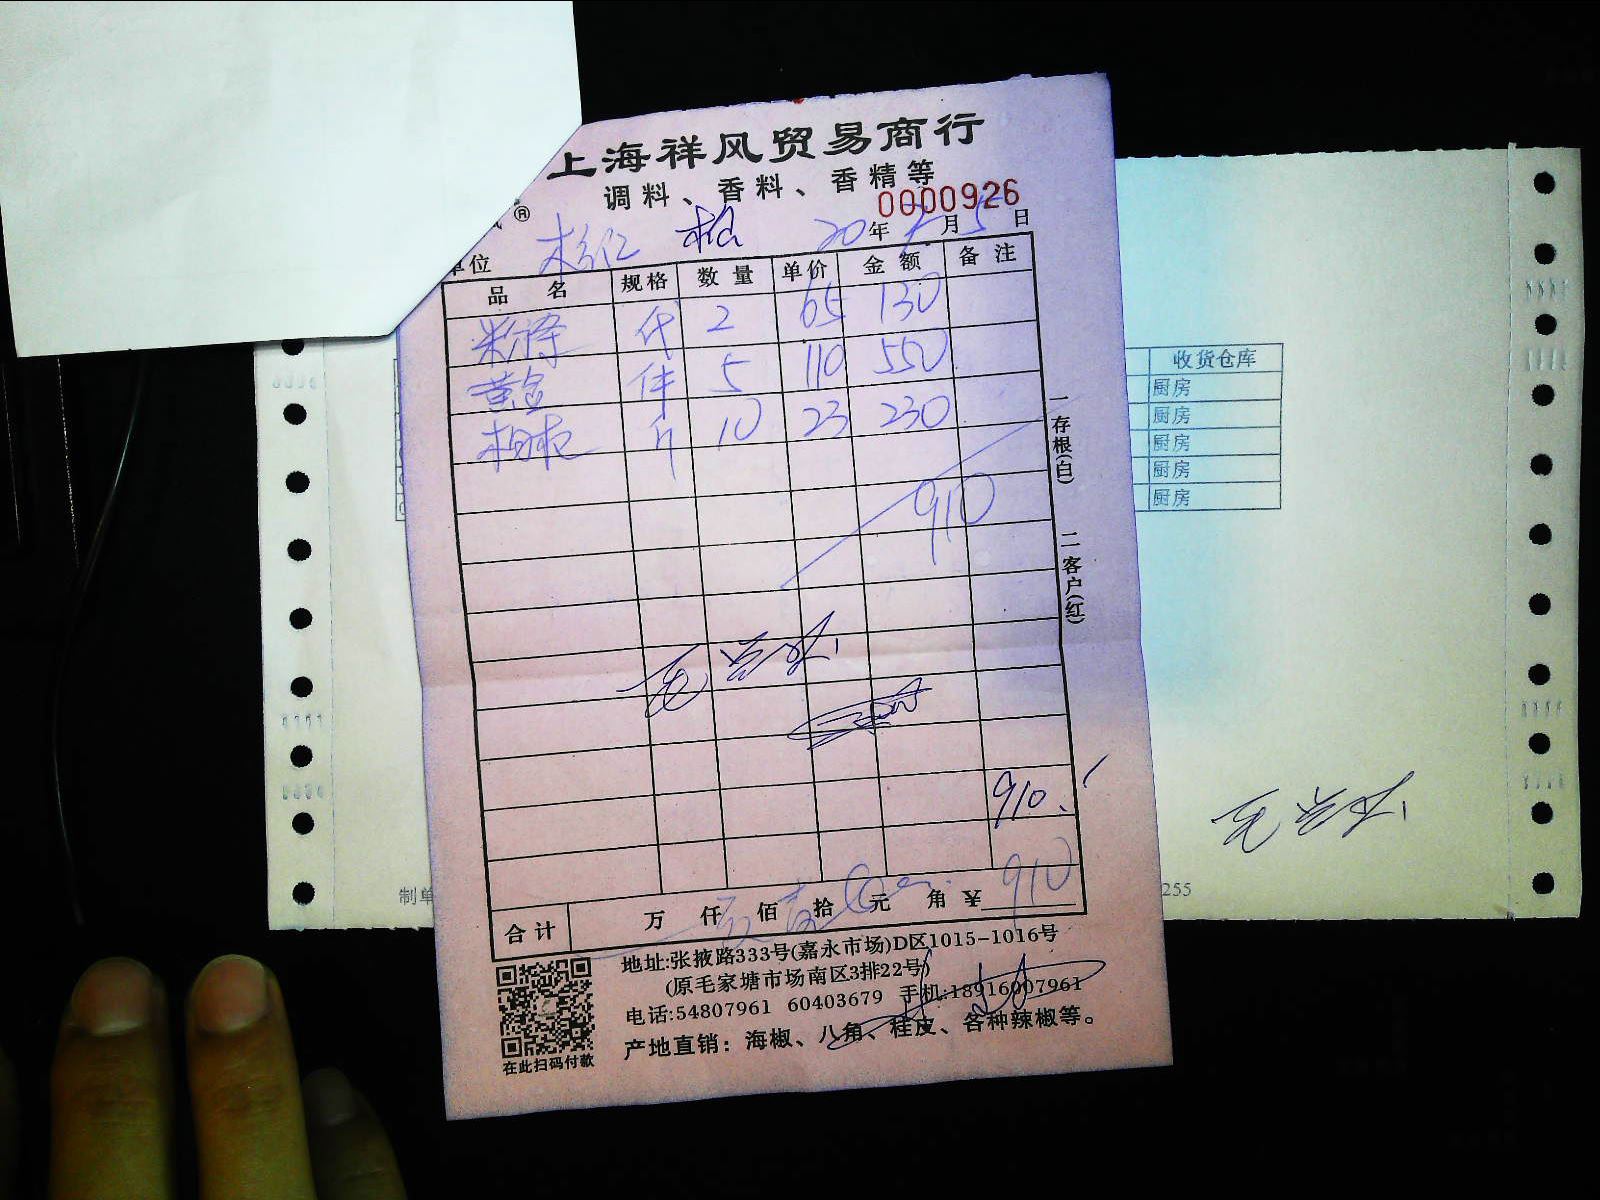 上海祥风贸易商行
调料、香料、香精等
0000926
®
单位 20年 月5日
品名 规格 数量 单价 金额 备注
代 2 65 130
黄金 件 5 110 550
斤 10 23 230
910
一存根(白)
二客户(红)
910.
合计 万 仟 佰 拾 元 角 ¥910
地址:张掖路333号(嘉永市场)D区1015-1016号
(原毛家塘市场南区3排22号)
电话:54807961 60403679 手机:18916007961
产地直销：海椒、八角、桂皮、各种辣椒等。
在此扫码付款
收货仓库
厨房
厨房
厨房
厨房
厨房
制单
255